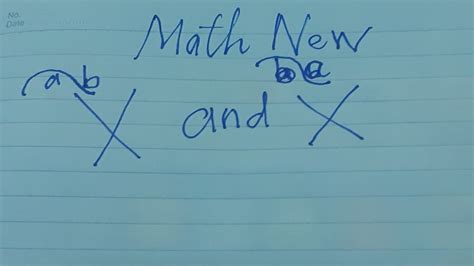 No.
Date
Math New
a b b a
X and X